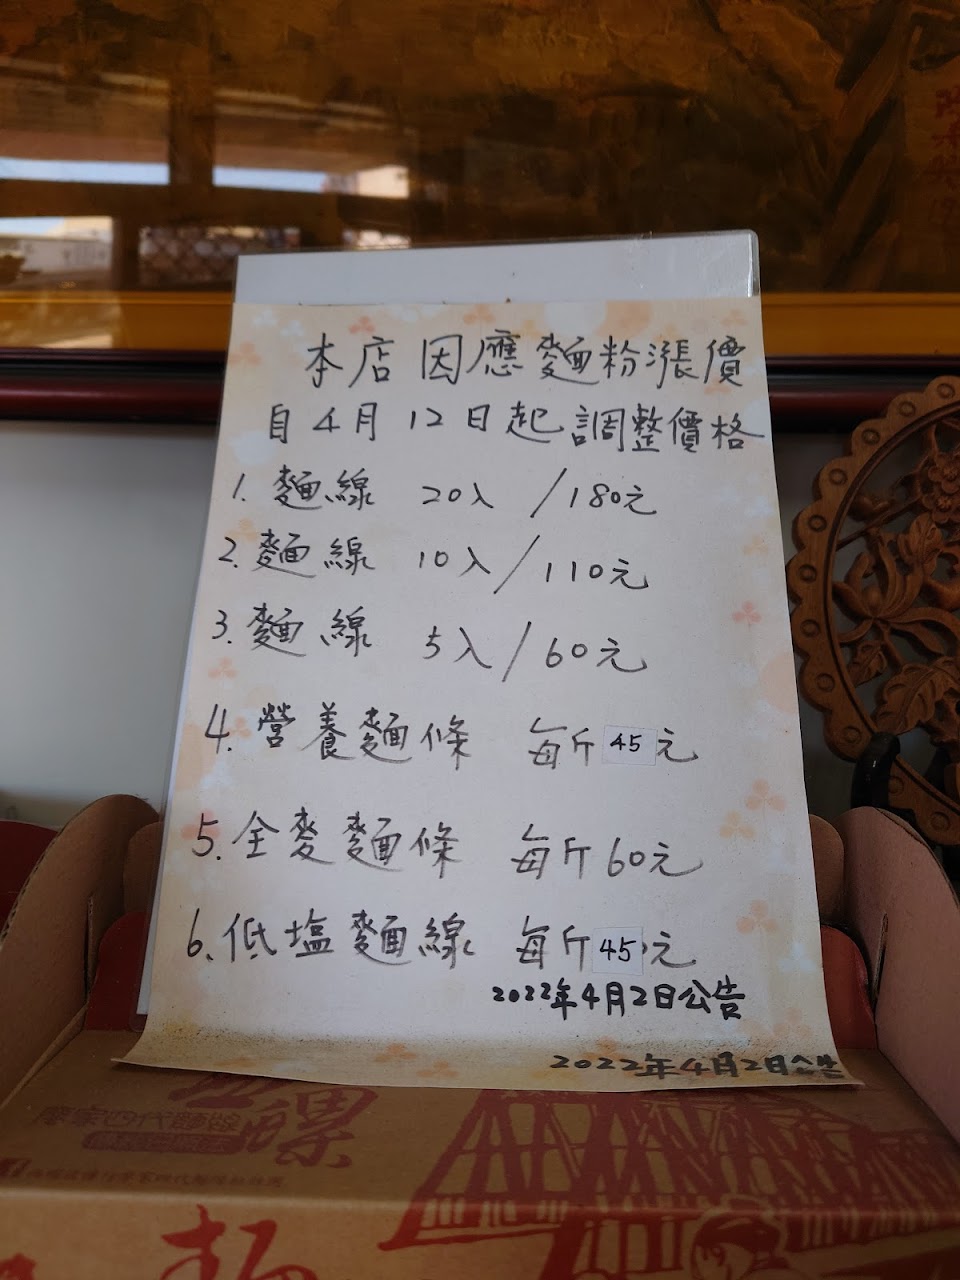 本店因應麵粉漲價
自4月12日起調整價格
1.麵線 20入/180元
2.麵線 10入/110元
3.麵線 5入/60元
4.營養麵條 每斤45元
5.全麥麵條 每斤60元
6.低塩麵線 每斤45元
2022年4月2日公告
2022年4月2日公告